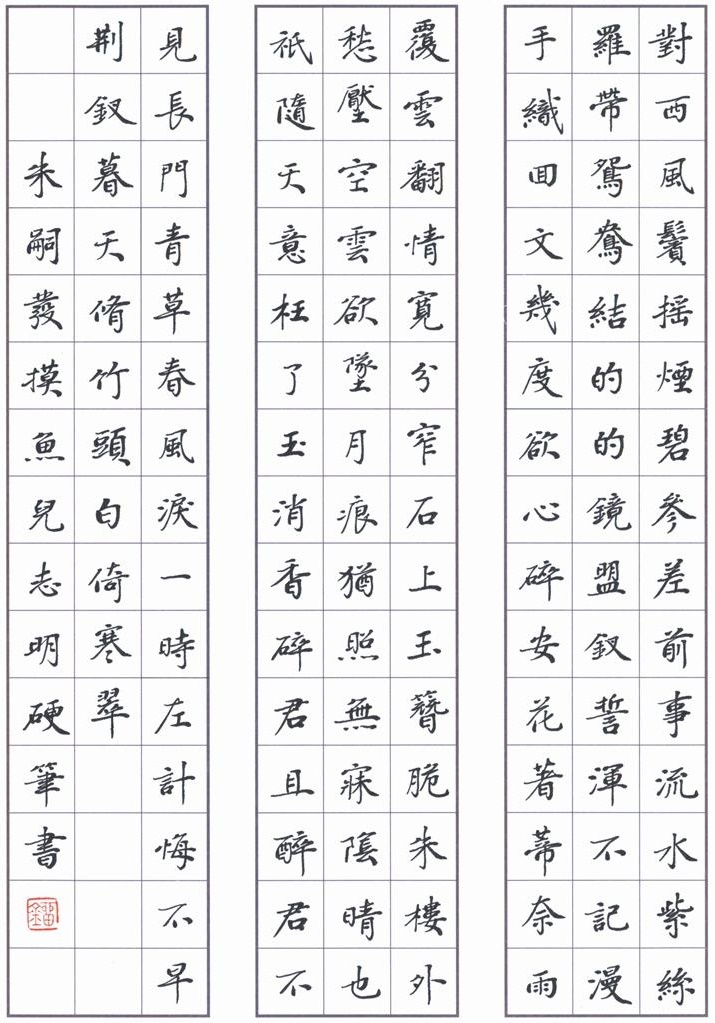 對西風鬢搖煙碧參差前事流水紫絲
羅帶鴛鴦結的的鏡盟釵誓渾不記漫
手織回文幾度欲心碎安花著蒂奈雨
覆雲翻情寬分窄石上玉簪脆朱樓外
愁壓空雲欲墜月痕猶照無寐陰晴也
祇隨天意枉了玉消香碎君且醉君不
見長門青草春風淚一時左計悔不早
荆釵暮天脩竹頭白倚寒翠
朱嗣發摸魚兒志明硬筆書